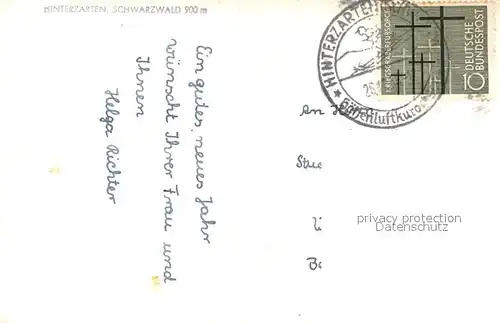 HINTERZARTEN, SCHWARZWALD 900 m
Ein gutes neues Jahr
wünscht Ihrer Frau und
Ihnen
Helga Richter
HINTERZARTEN
Höhenluftkurort
KRIEGSGRÄBERFÜRSORGE
DEUTSCHE
BUNDESPOST
10
An
privacy protection
Datenschutz